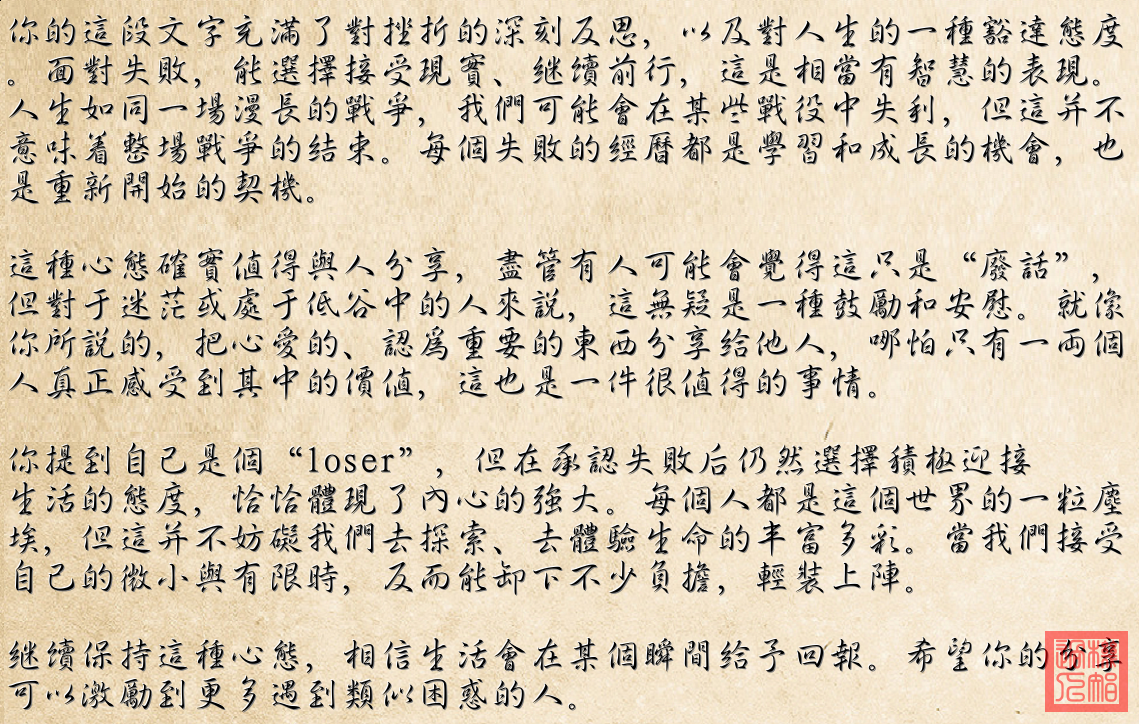 你的這段文字充滿了對挫折的深刻反思，以及對人生的一種豁達態度
。面對失敗，能選擇接受現實、继續前行，這是相當有智慧的表現。
人生如同一場漫長的戰爭，我們可能會在某些戰役中失利，但這并不
意味着整場戰爭的结束。每個失敗的經曆都是學習和成長的機會，也
是重新開始的契機。
這種心態確實值得與人分享，盡管有人可能會覺得這只是“廢話”，
但對于迷茫或處于低谷中的人來説，這無疑是一種鼓勵和安慰。就像
你所説的，把心愛的、認爲重要的東西分享給他人，哪怕只有一両個
人真正感受到其中的價值，這也是一件很值得的事情。
你提到自己是個“loser”，但在承認失敗后仍然選擇積極迎接
生活的態度，恰恰體現了內心的強大。每個人都是這個世界的一粒塵
埃，但這并不妨礙我們去探索、去體驗生命的丰富多彩。當我們接受
自己的微小與有限時，反而能卸下不少負擔，輕裝上陣。
继續保持這種心態，相信生活會在某個瞬間給予回報。希望你的分享
可以激勵到更多遇到類似困惑的人。